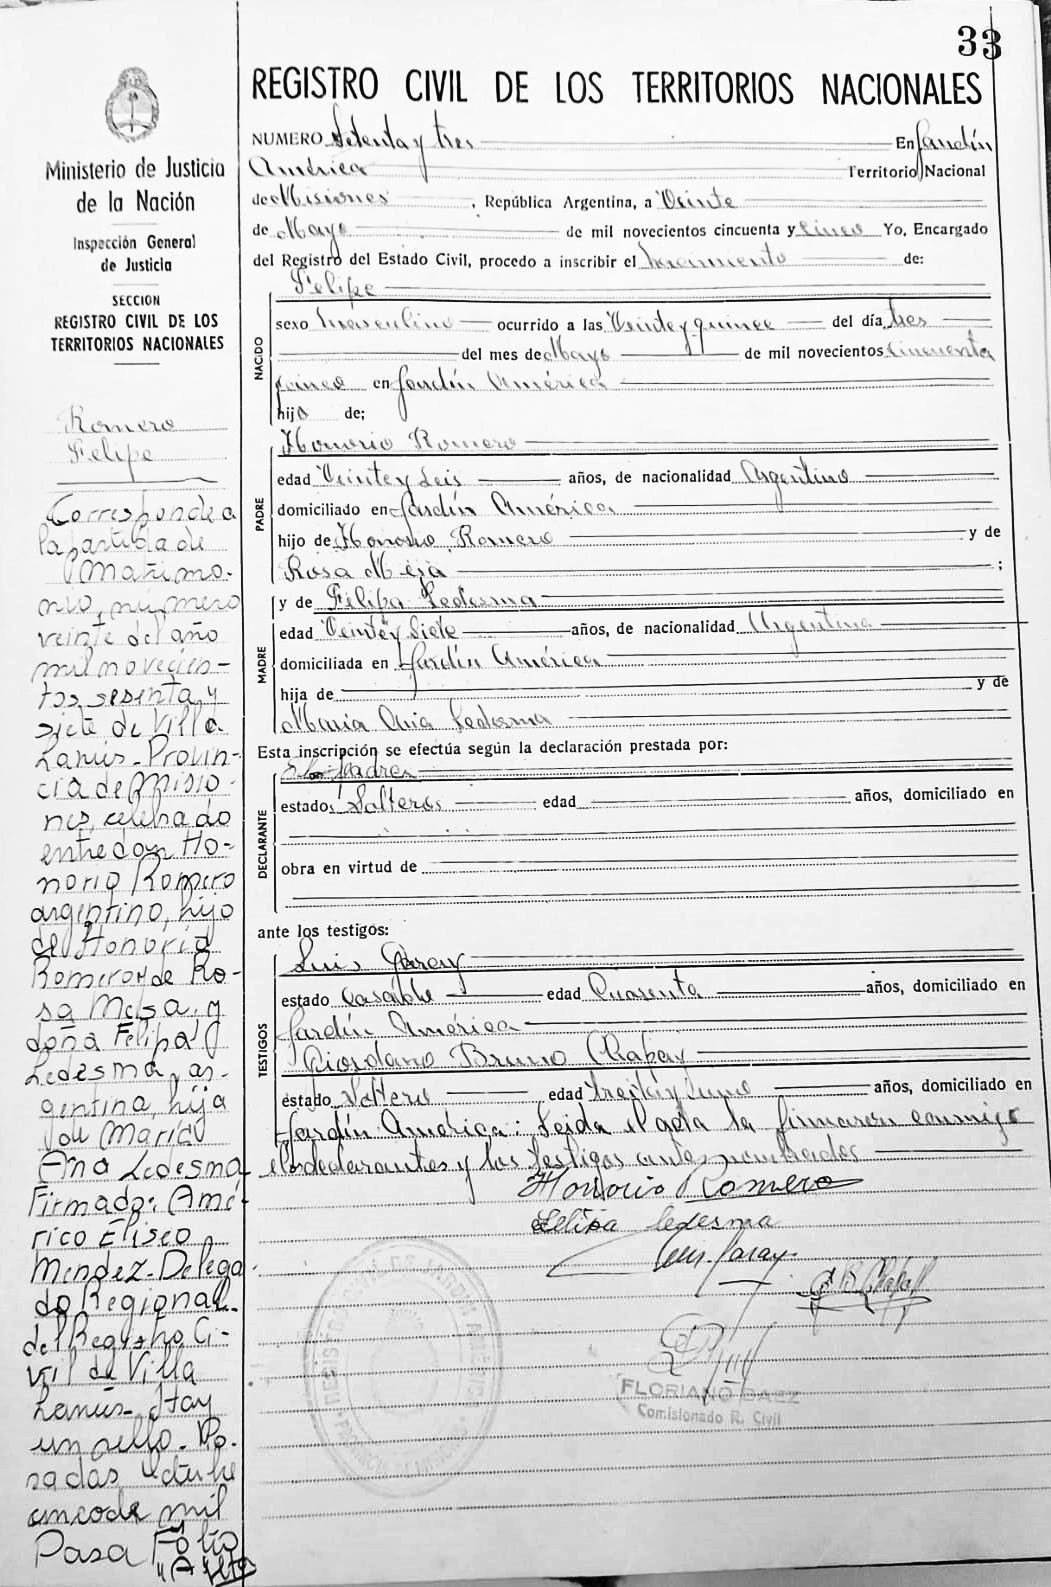 33
REGISTRO CIVIL DE LOS TERRITORIOS NACIONALES
NUMERO Setenta y tres En Jardín
América Territorio Nacional
de Misiones, República Argentina, a Veinte
de Mayo de mil novecientos cincuenta y cinco Yo, Encargado
del Registro del Estado Civil, procedo a inscribir el nacimiento de:
Felipe
NACIDO
sexo masculino ocurrido a las Veinte y quince del día tres
del mes de Mayo de mil novecientos cincuenta
y cinco en Jardín América
hijo de;
PADRE
Honorio Romero
edad Veinte y seis años, de nacionalidad Argentino
domiciliado en Jardín América
hijo de Honorio Romero y de
Rosa Meza ;
MADRE
y de Felipa Ledesma
edad Veinte y siete años, de nacionalidad Argentina
domiciliada en Jardín América
hija de y de
María Ana Ledesma
Esta inscripción se efectúa según la declaración prestada por:
DECLARANTE
Los padres
estado Solteros edad años, domiciliado en
obra en virtud de
ante los testigos:
TESTIGOS
Luis Garay
estado Casado edad Cuarenta años, domiciliado en
Jardín América
Giordano Bruno Chapay
estado Soltero edad treinta y uno años, domiciliado en
Jardín América: Leida el acta la firmaron conmigo
los declarantes y los testigos antes nombrados
Honorio Romero
Felipa Ledesma
Luis Garay
G B Chapay
FLORIANO BAEZ
Comisionado R. Civil
Ministerio de Justicia
de la Nación
Inspección General
de Justicia
SECCION
REGISTRO CIVIL DE LOS
TERRITORIOS NACIONALES
Romero
Felipe
Corresponde a
la partida de
Matrimo-
nio, número
veinte del año
mil novecien-
tos sesenta y
siete de Villa
Lanús - Provin-
cia de Misio-
nes, celebrado
entre don Ho-
norio Romero
argentino, hijo
de Honorio
Romero y de Ro-
sa Mesa, y
doña Felipa
Ledesma, ar-
gentina, hija
de María
Ana Ledesma
Firmado: Amé-
rico Eliseo
Mendez - Delega
do Regional
del Registro Ci-
vil de Villa
Lanús - Hay
un sello - Po-
sadas Octubre
cinco de mil
Pasa Folio